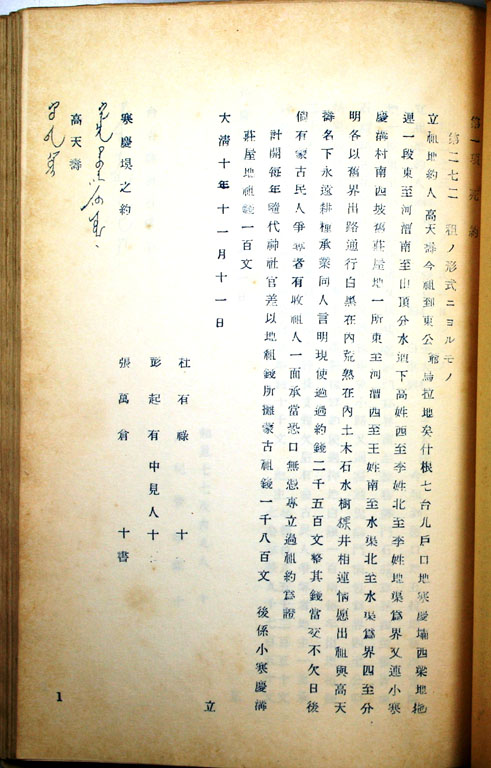 第一項 死約
第二七二 租ノ形式ニヨルモノ
立租地約人高天壽今租到東公爺烏拉地矣什根七台几戶口地寒慶壩西梁地拖
連一段東至河漕南至山頂分水洒下高姓西至李姓北至李姓地㘰爲界又連小寒
慶溝村南西坡舊莊屋地一所東至河漕西至王姓南至水渠北至水渠爲界四至分
明各以舊界出路通行白黑在內荒熟在內土木石水樹株井相連情愿出租與高天
壽名下永遠耕種承業同人言明現使過過約錢二千五百文整其錢當交不欠日後
倘有蒙古民人爭奪者有收租人一面承當恐口無憑專立過租約爲證
計開每年隨代神社官差以地租錢所攤蒙古租錢一千八百文 後係小寒慶溝
莊屋地租錢一百文
大淸十年十一月十一日 立
寒慶垻之約
高天壽
杜有祿 十
彭起有 中見人十
張萬倉 十書
1